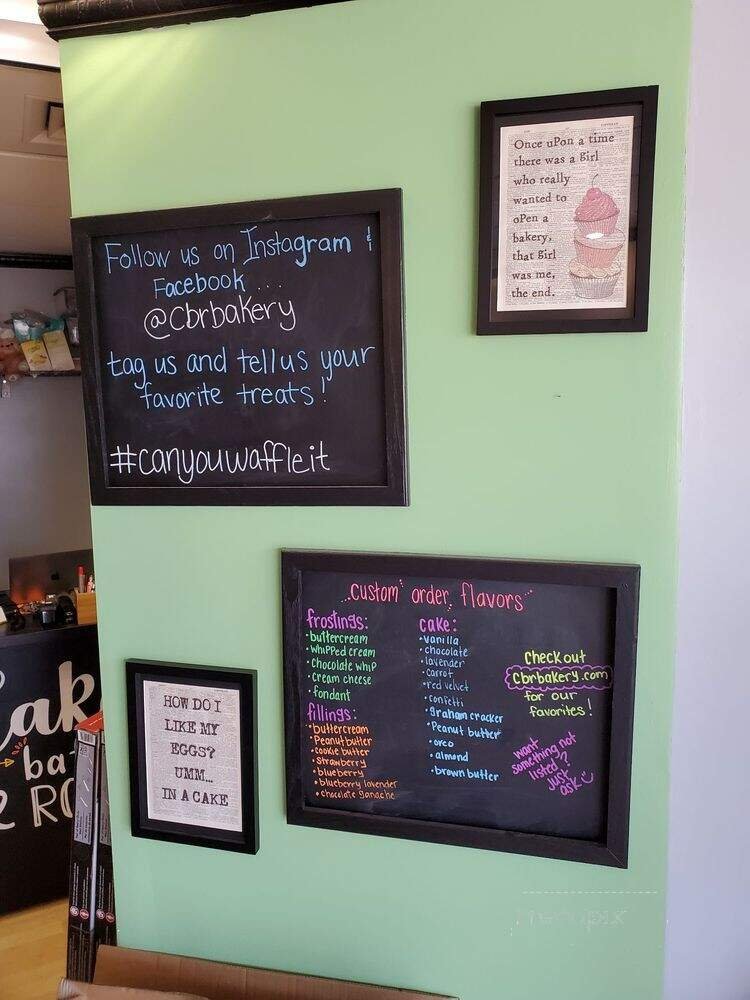 Follow us on Instagram &
Facebook ...
@Cbrbakery
tag us and tell us your
favorite treats!
#canyouwaffleit
Once uPon a time
there was a girl
who really
wanted to
oPen a
bakery,
that girl
was me,
the end.
HOW DO I
LIKE MY
EGGS?
UMM...
IN A CAKE
custom order flavors
frostings:
• buttercream
• whipped cream
• chocolate whip
• cream cheese
• fondant
fillings:
• buttercream
• Peanutbutter
• cookie butter
• Strawberry
• blueberry
• blueberry lavender
• chocolate ganache
cake:
• vanilla
• chocolate
• lavender
• carrot
• red velvet
• confetti
• graham cracker
• Peanut butter
• oreo
• almond
• brown butter
check out
cbrbakery.com
for our
favorites!
want
something not
listed?
just
ask
ba